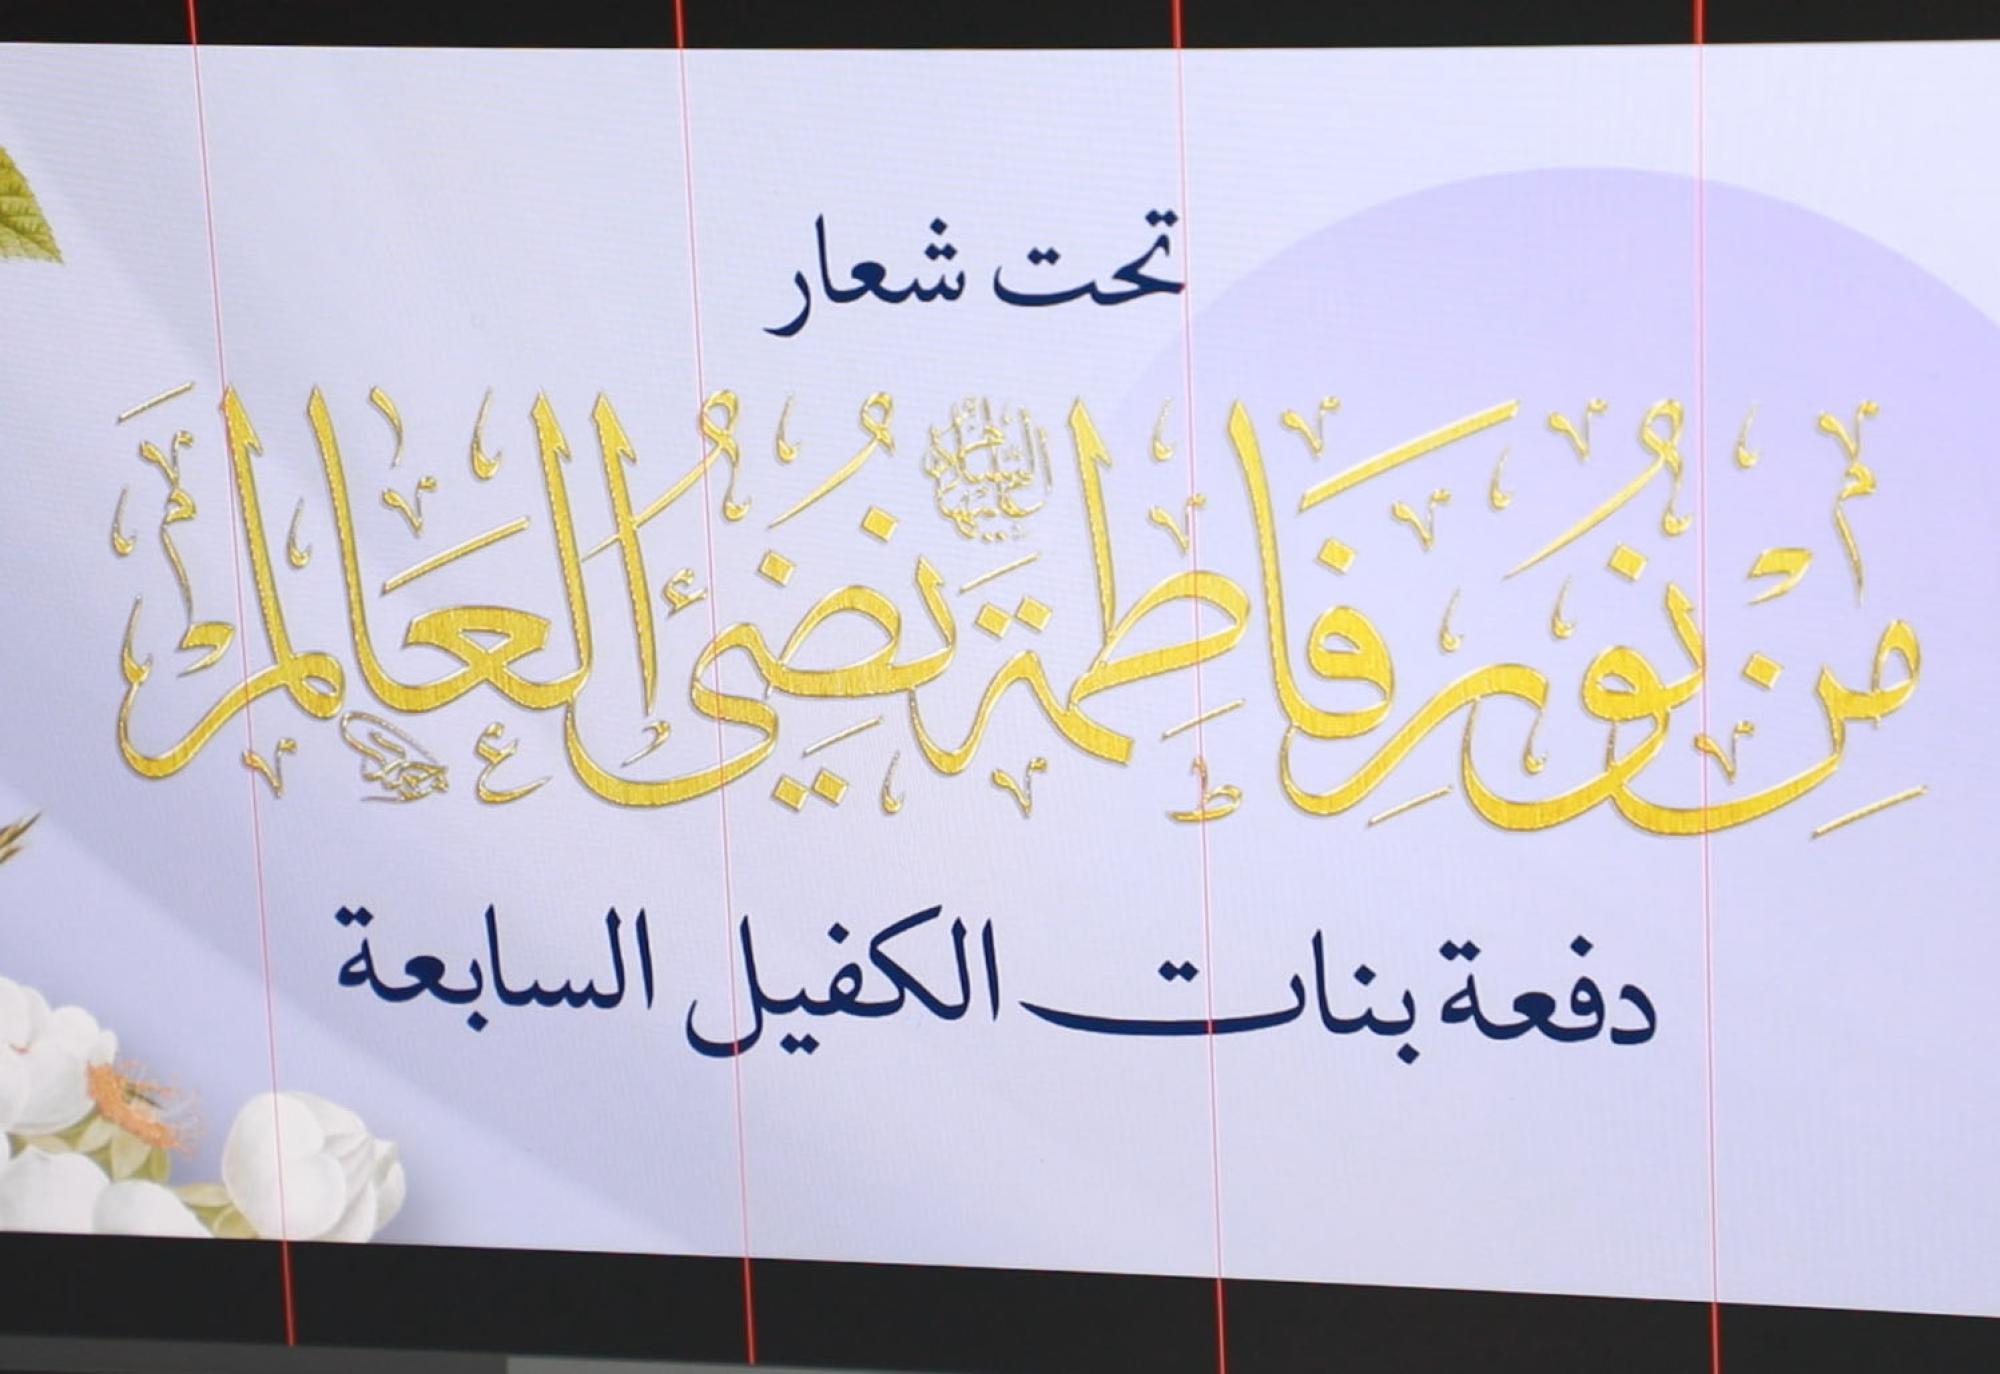 تحت شعار
من نور فاطمة عليها السلام نضيء العالم
دفعة بنات الكفيل السابعة